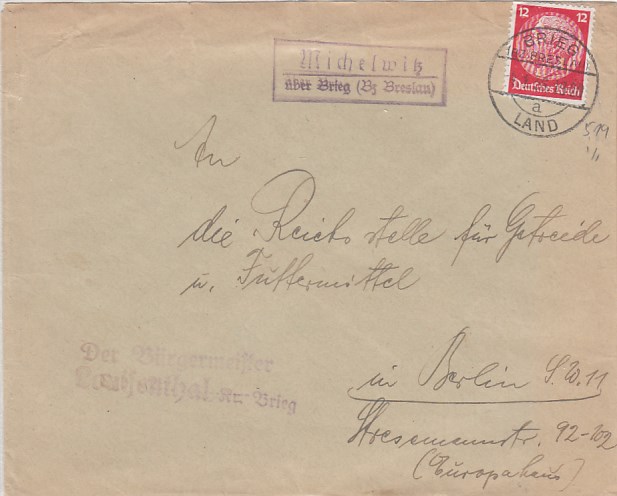 Michelwitz
über Brieg (Bz Breslau)
12 12
Deutsches Reich
BRIEG
BZ. BRESLAU
a
LAND
An
die Reichsstelle für Getreide
u. Futtermittel
in Berlin S.W. 11
Stresemannstr. 92-102
(Europahaus)
Der Bürgermeister
Kr. Brieg